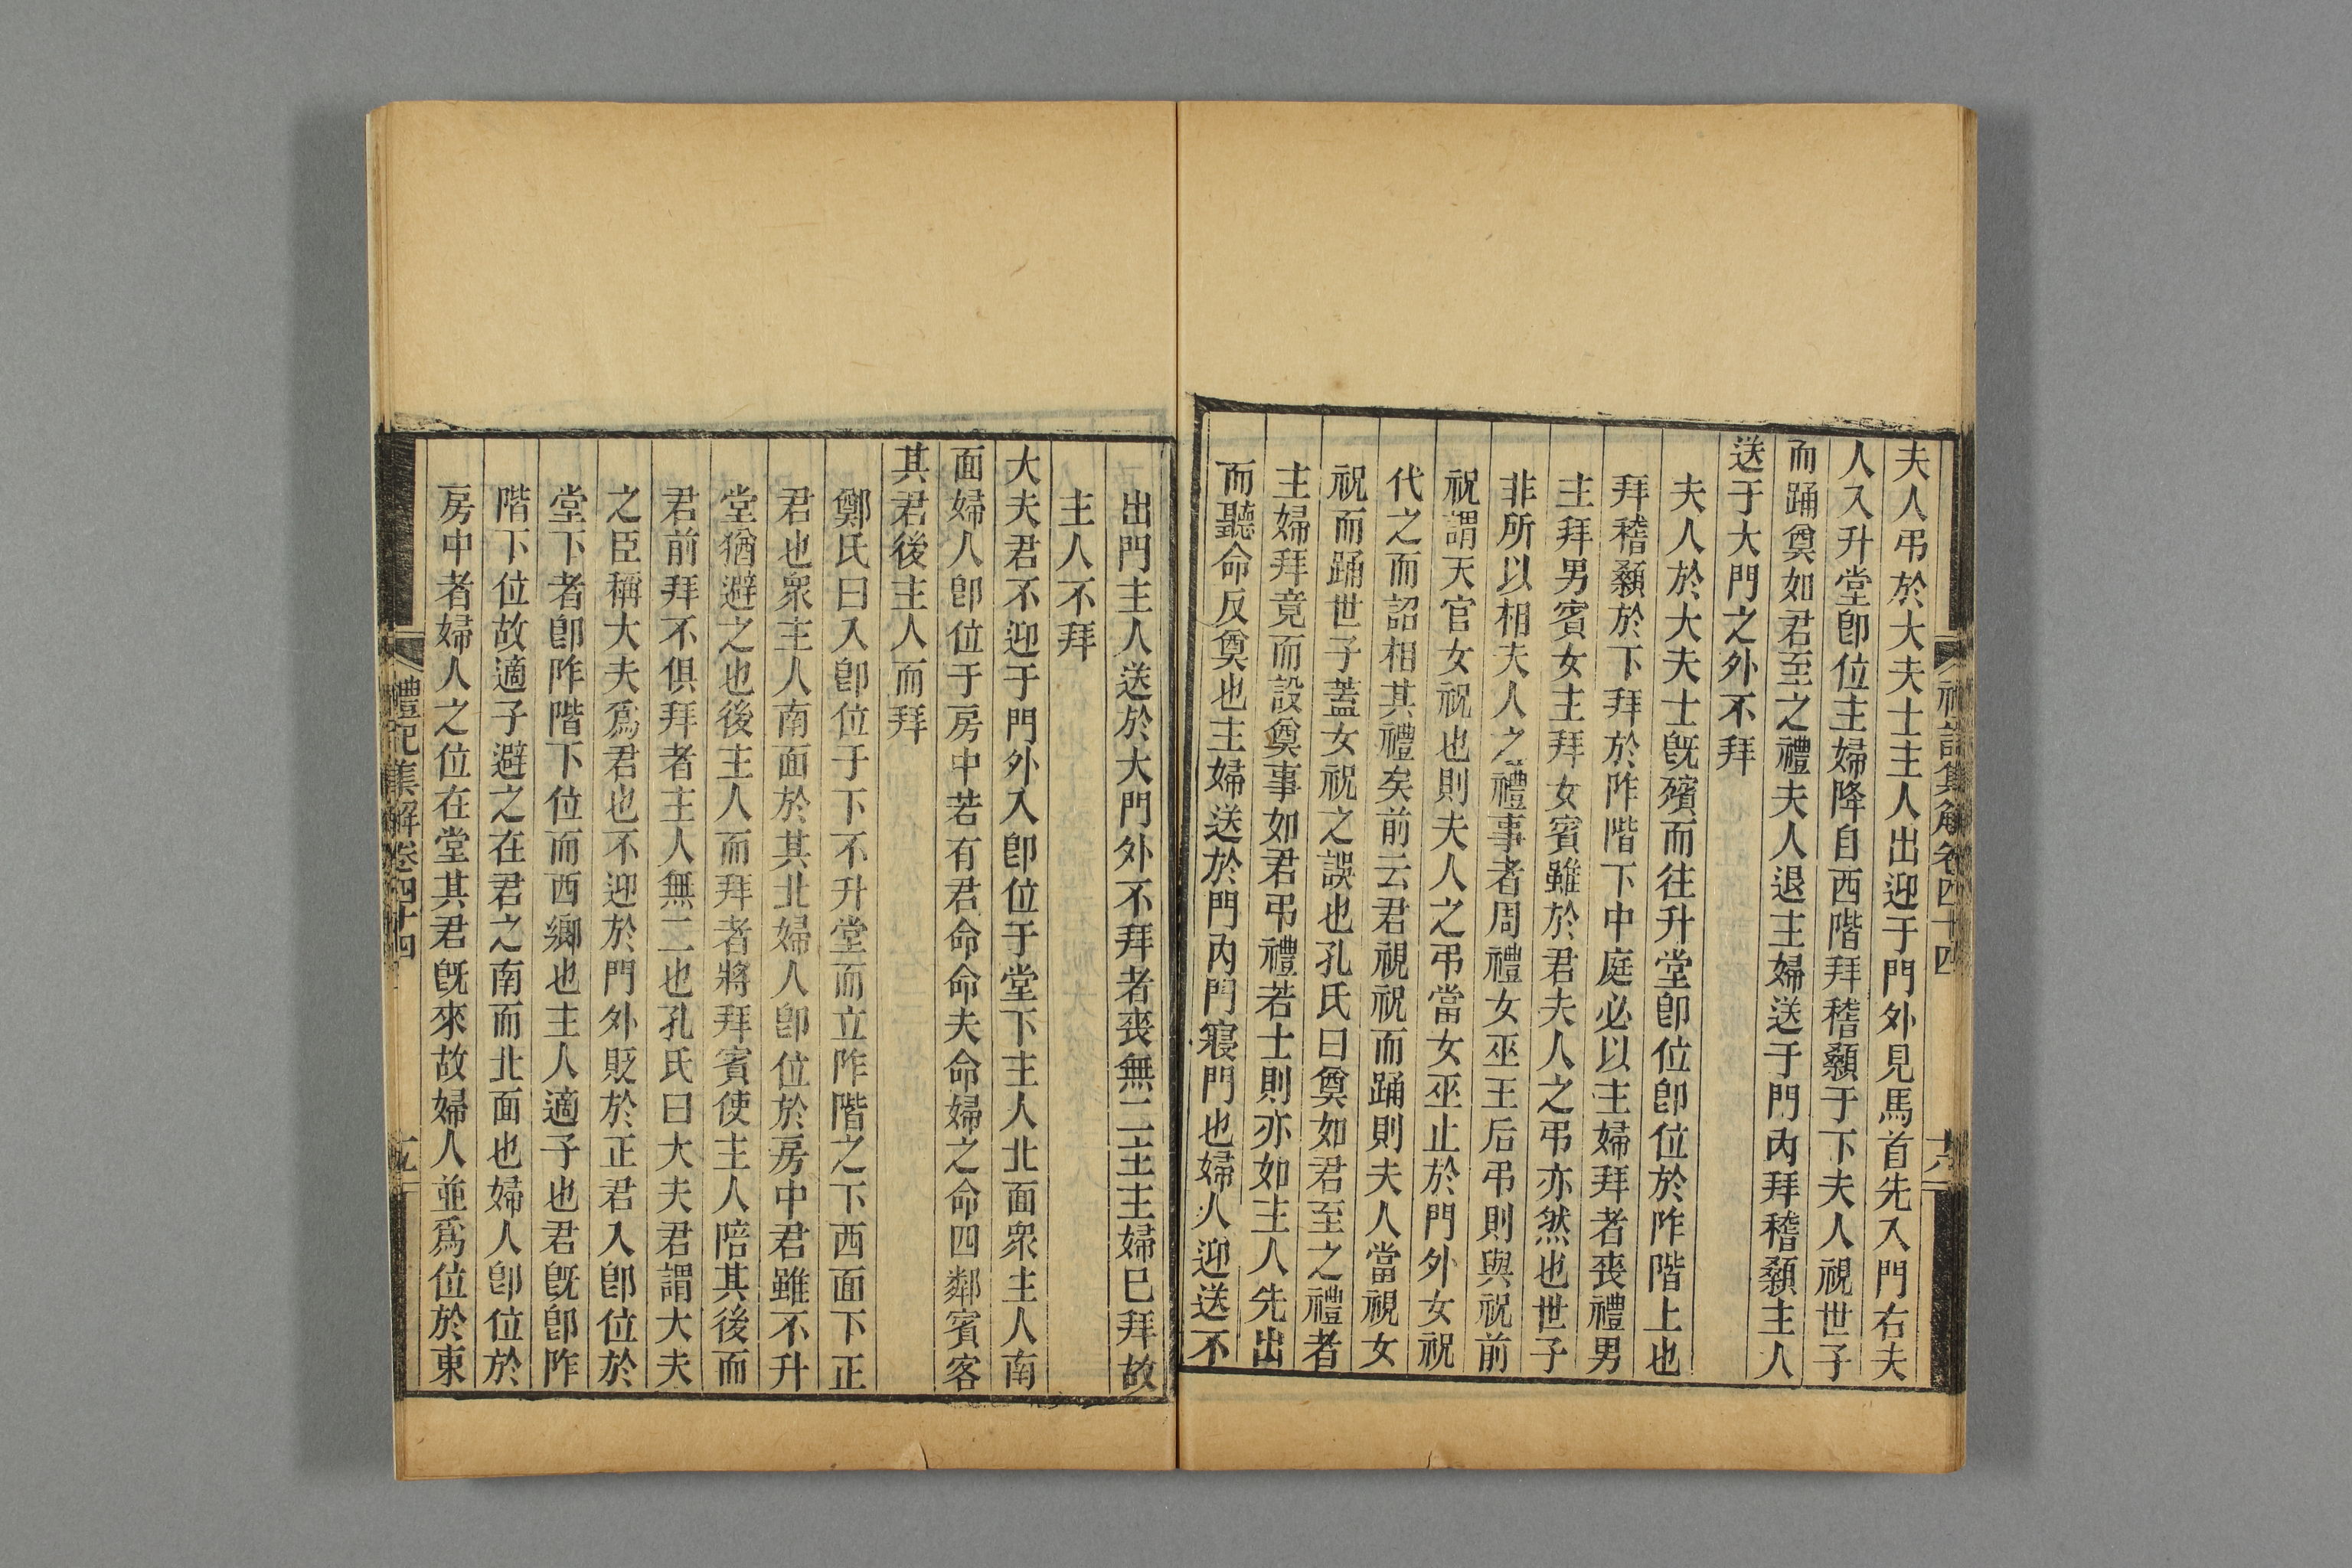 禮記集解卷四十四
夫人弔於大夫士主人出迎于門外見馬首先入門右夫
人入升堂卽位主婦降自西階拜稽顙于下夫人視世子
而踊奠如君至之禮夫人退主婦送于門內拜稽顙主人
送于大門之外不拜
夫人於大夫士旣殯而往升堂卽位卽位於阼階上也
拜稽顙於下拜於阼階下中庭必以主婦拜者喪禮男
主拜男賓女主拜女賓雖於君夫人之弔亦然也世子
非所以相夫人之禮事者周禮女巫王后弔則與祝前
祝謂天官女祝也則夫人之弔當女巫止於門外女祝
代之而詔相其禮矣前云君視祝而踊則夫人當視女
祝而踊世子蓋女祝之誤也孔氏曰奠如君至之禮者
主婦拜竟而設奠事如君弔禮若士則亦如主人先出
而聽命反奠也主婦送於門內門寢門也婦人迎送不
出門主人送於大門外不拜者喪無二主主婦已拜故
主人不拜
大夫君不迎于門外入卽位于堂下主人北面眾主人南
面婦人卽位于房中若有君命命夫命婦之命四鄰賓客
其君後主人而拜
鄭氏曰入卽位于下不升堂而立阼階之下西面下正
君也眾主人南面於其北婦人卽位於房中君雖不升
堂猶避之也後主人而拜者將拜賓使主人陪其後而
君前拜不俱拜者主人無二也孔氏曰大夫君謂大夫
之臣稱大夫爲君也不迎於門外貶於正君入卽位於
堂下者卽阼階下位而西鄉也主人適子也君旣卽阼
階下位故適子避之在君之南而北面也婦人卽位於
房中者婦人之位在堂其君旣來故婦人並爲位於東
禮記集解卷四十四